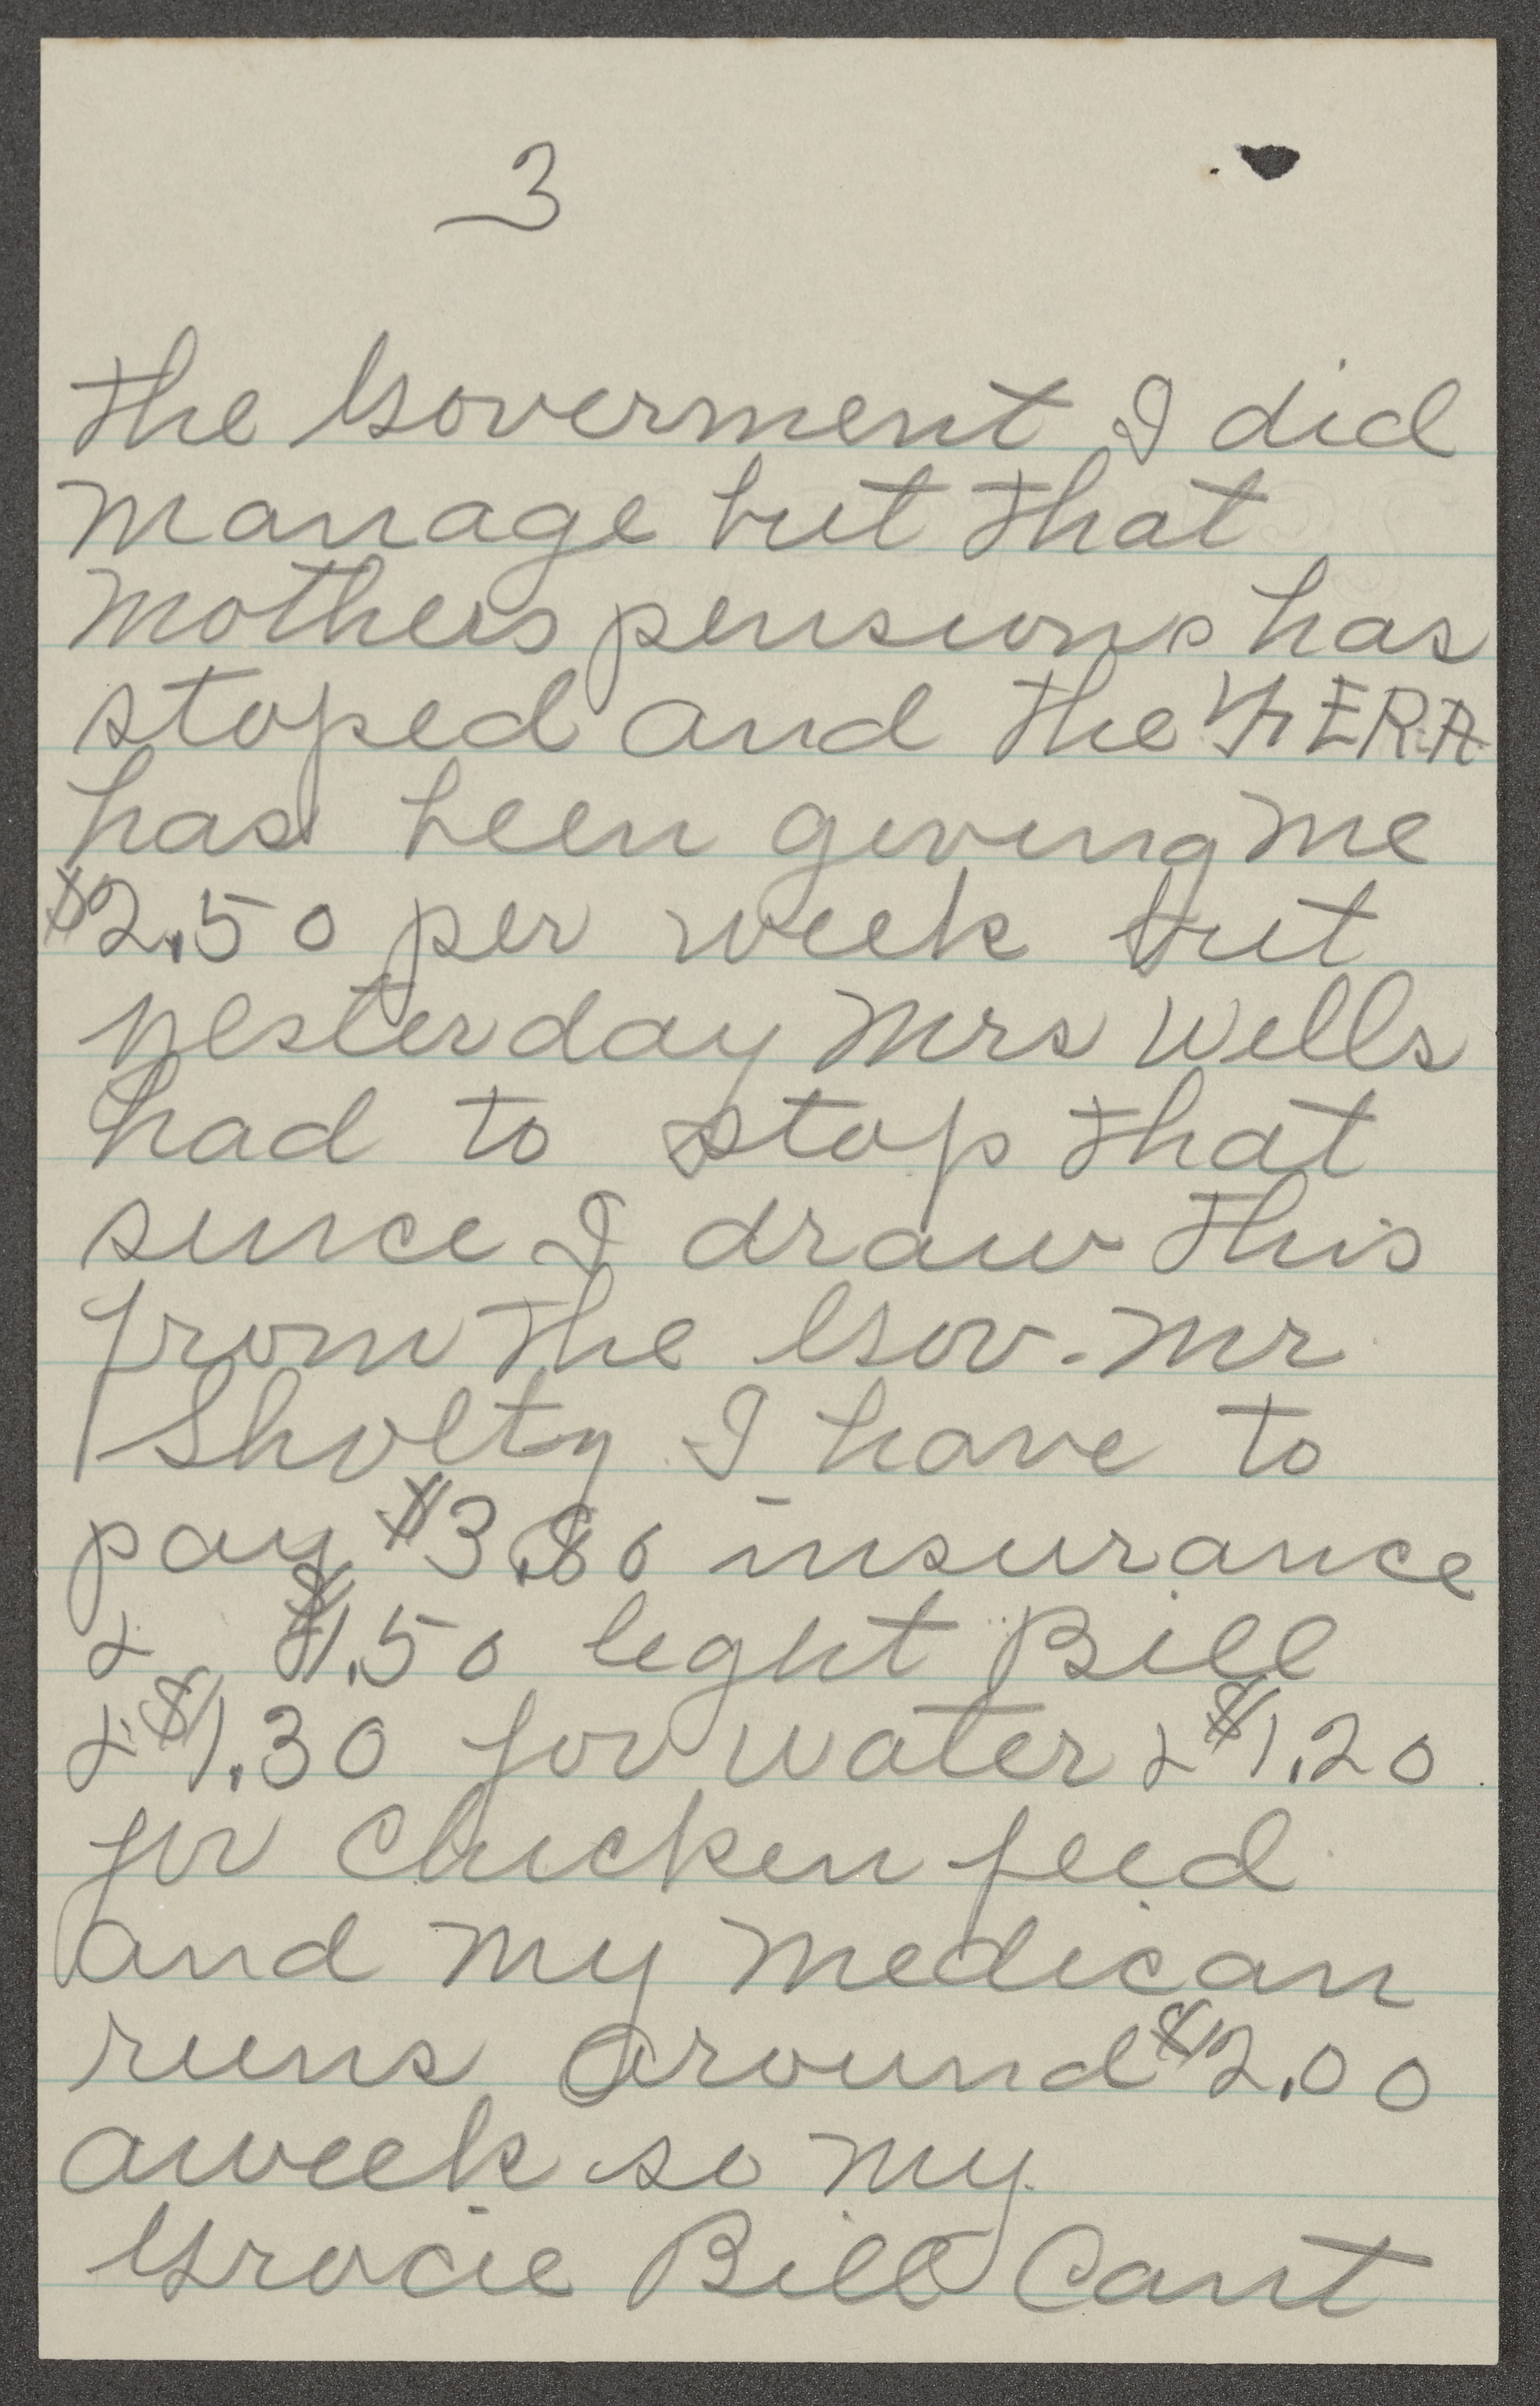 3
the Goverment I did
manage but that
mothers pensions has
stoped and the FERA
has been giving me
$2.50 per week but
yesterday Mrs Wells
had to stop that
since I draw this
from the Gov. Mr
Sholtz I have to
pay $3.80 insurance
& $1.50 light Bill
& $1.30 for water & $1.20
for chicken feed
and my medican
runs around $2.00
aweek so my
Grocie Bill Cant